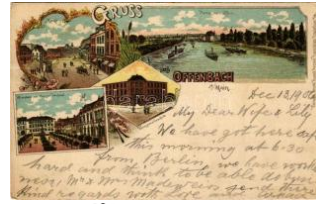 GRUSS
OFFENBACH
a/Main
Dec 12/9
My Dear Wife &
We have got here
this morning at 6:30
from Berlin, we have work
hard and think to be able do
ness, Mr & Mrs send there
kind regards with love